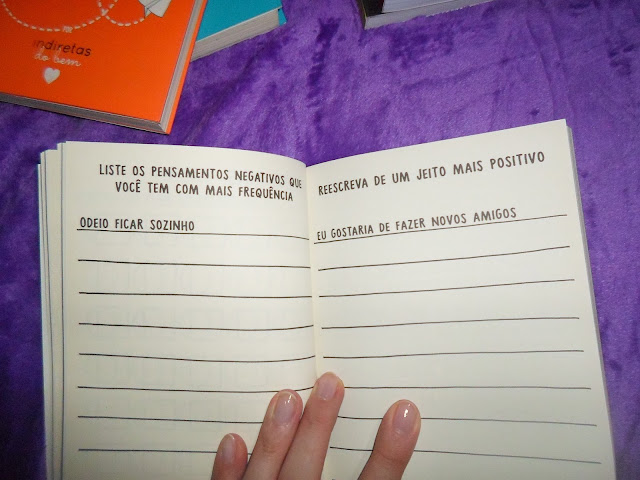 indiretas
do bem
LISTE OS PENSAMENTOS NEGATIVOS QUE
VOCÊ TEM COM MAIS FREQUÊNCIA
ODEIO FICAR SOZINHO
REESCREVA DE UM JEITO MAIS POSITIVO
EU GOSTARIA DE FAZER NOVOS AMIGOS